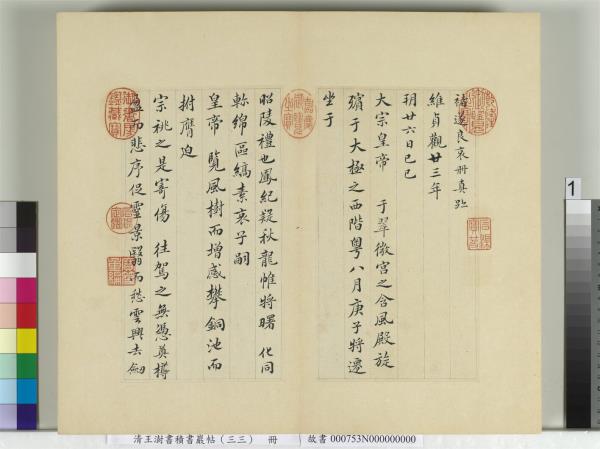 褚遂良哀冊真跡
維貞觀廿三年
朔廿六日己巳
大宗皇帝 于翠微宮之含風殿旋
殯于大極之西階粵八月庚子將遷
坐于
昭陵禮也鳳紀疑秋龍帷將曙 化同
軫綿區縞素哀子嗣
皇帝 覽風樹而增感攀銅池而
拊膺迫
宗祧之是寄傷 往駕之無憑奠樽
盈而悲序促靈景翳而愁雲興去劒
1
清王澍書積書巖帖(三三) 冊 故書 000753N000000000